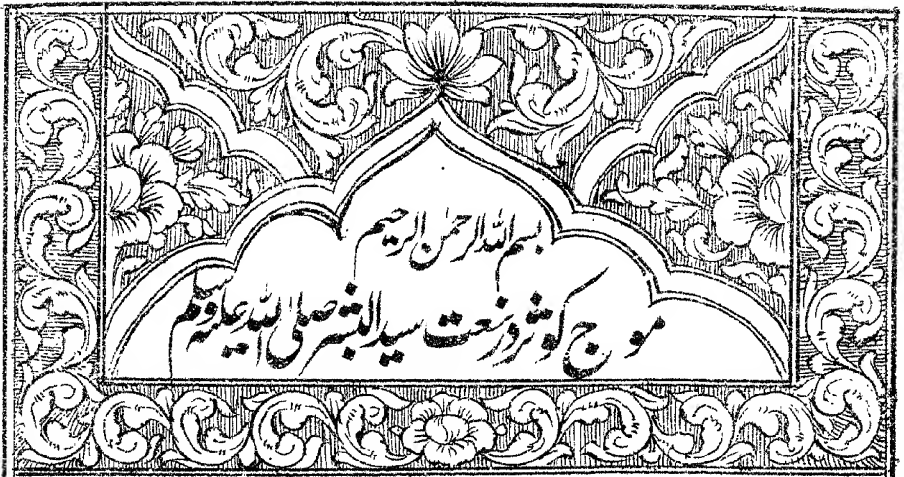 بسم اللہ الرحمٰن الرحیم
موج کوثر در نعت سید البشر صلی اللہ علیہ وسلم